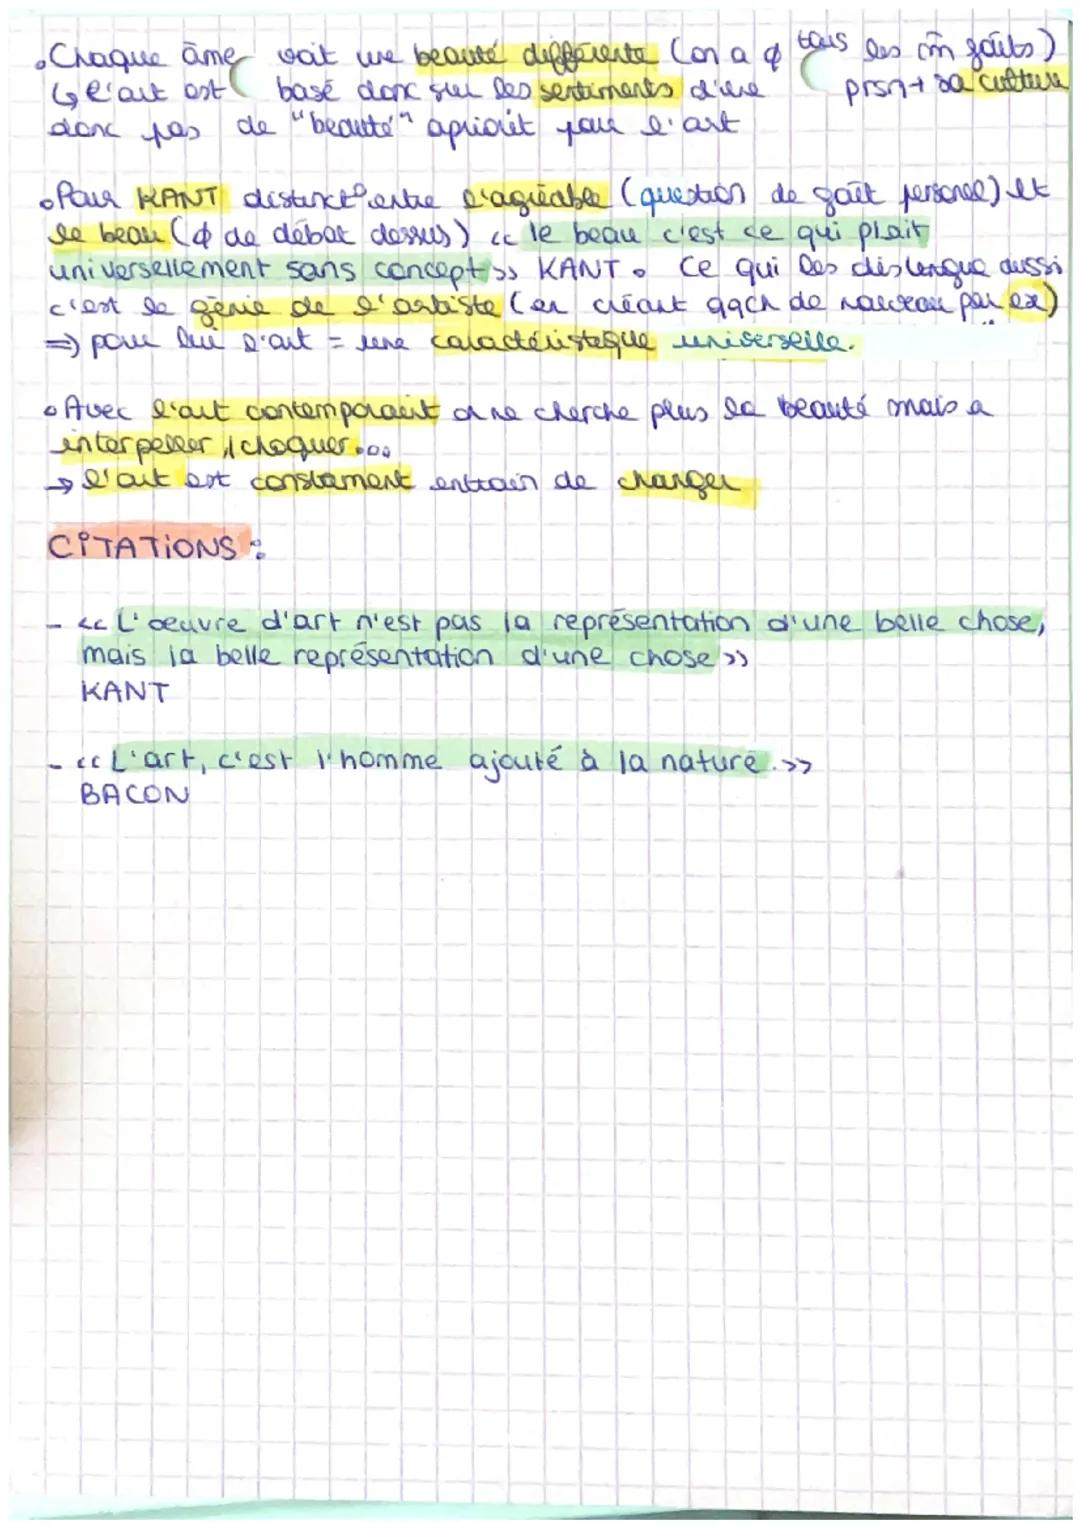 • Chaque âme voit une beauté différente (on a ϕ tous les m̂ goûts)
↳ l'art est basé donc sur les sentiments d'une prsn + sa culture
donc pas de "beauté" apriorit pour l'art
• Pour KANT distinct° entre l'agréable (question de goût personel) et
le beau (ϕ de débat dessus) << le beau c'est ce qui plait
universellement sans concept >> KANT. Ce qui les distengue aussi
c'est le génie de l'artiste (en créant qqch de nouveau par ex)
=> pour lui l'art = une caractéristique universelle.
• Avec l'art contemporaint on ne cherche plus la beauté mais a
interpeller, choquer...
→ l'art est constament entrain de changer
CITATIONS :
- << L'oeuvre d'art n'est pas la représentation d'une belle chose,
mais la belle représentation d'une chose >>
KANT
- << L'art, c'est l'homme ajouté à la nature. >>
BACON